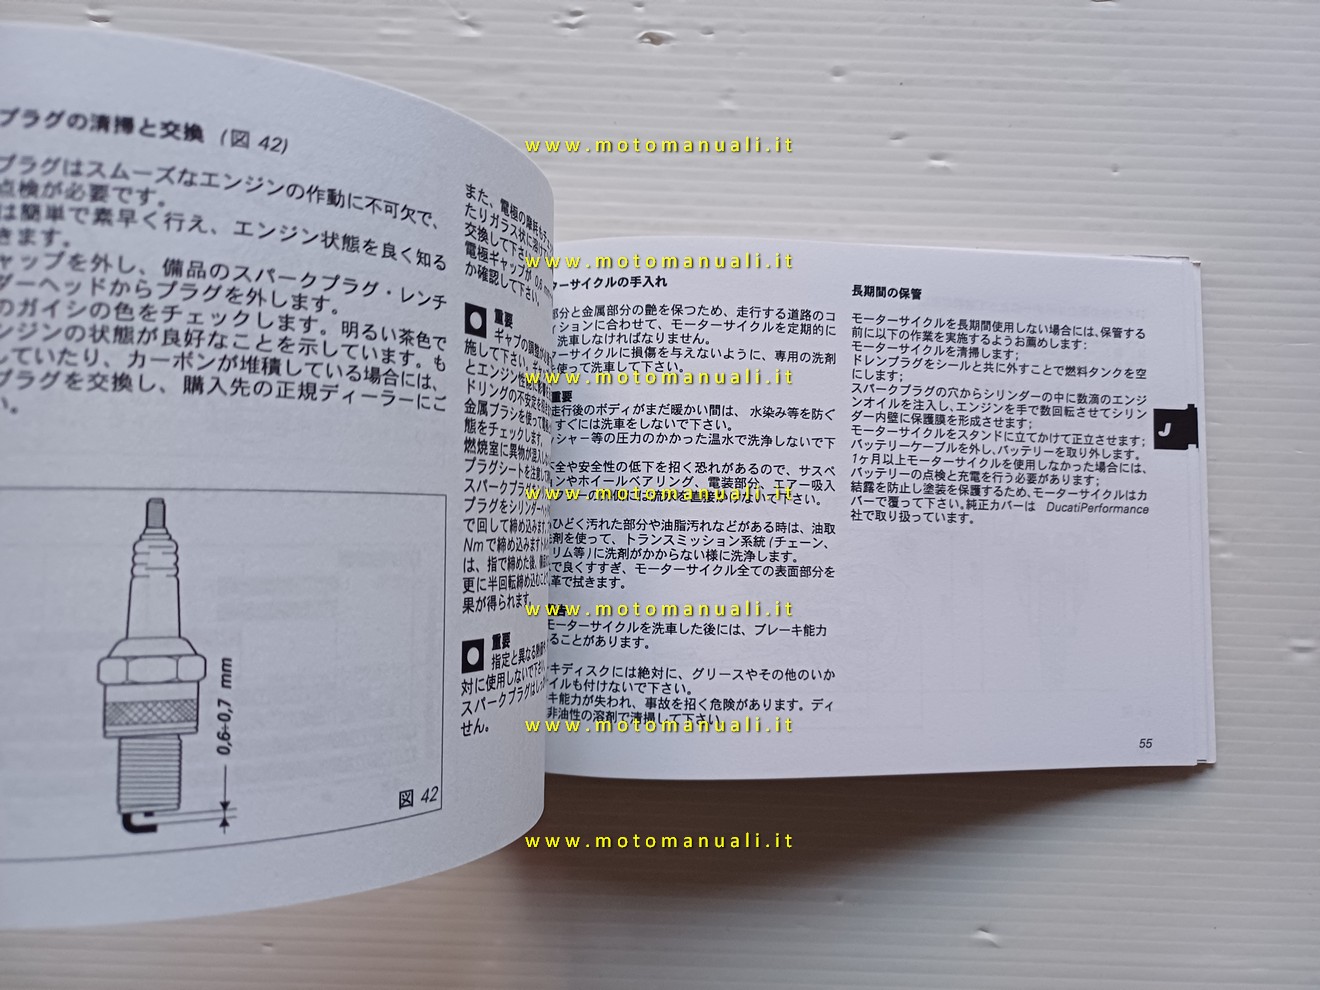 プラグの清掃と交換 (図 42)
プラグはスムーズなエンジンの作動に不可欠で、
点検が必要です。
は簡単で素早く行え、エンジン状態を良く知る
きます。
ャップを外し、備品のスパークプラグ・レンチ
ダーヘッドからプラグを外します。
のガイシの色をチェックします。明るい茶色で
ンジンの状態が良好なことを示しています。も
していたり、カーボンが堆積している場合には、
プラグを交換し、購入先の正規ディーラーにご
い。
0,6÷0,7 mm
図 42
また、電極の磨耗も
たりガラス状に溶け
交換して下さい。
電極ギャップが 0,6
か確認して下さい。
重要
ギャプの調整が
施して下さい。
とエンジン性能に
ドリングの不安定を
金属ブラシを使って
態をチェックします。
燃焼室に異物が混入し
プラグシートを注意して
スパークプラグを
プラグをシリンダーヘッ
で回して締め込みます
Nmで締め込みます
は、指で締めた後、
更に半回転締め込む
果が得られます。
重要
指定と異なる
対に使用しないで下さい。
スパークプラグはしっか
せん。
ターサイクルの手入れ
部分と金属部分の艶を保つため、走行する道路のコ
ィションに合わせて、モーターサイクルを定期的に
洗車しなければなりません。
アーサイクルに損傷を与えないように、専用の洗剤
を使って洗車して下さい。
重要
走行後のボディがまだ暖かい間は、水染み等を防ぐ
すぐには洗車をしないで下さい。
ッシャー等の圧力のかかった温水で洗浄しないで下
全や安全性の低下を招く恐れがあるので、サスペ
ンやホイールベアリング、電装部分、エアー吸入
で下さい。
ひどく汚れた部分や油脂汚れなどがある時は、油取
洗剤を使って、トランスミッション系統 (チェーン、
リム等) に洗剤がかからない様に洗浄します。
で良くすすぎ、モーターサイクル全ての表面部分を
革で拭きます。
告
モーターサイクルを洗車した後には、ブレーキ能力
ることがあります。
キディスクには絶対に、グリースやその他のいか
イルも付けないで下さい。
キ能力が失われ、事故を招く危険があります。ディ
非油性の溶剤で清掃して下さい。
長期間の保管
モーターサイクルを長期間使用しない場合には、保管する
前に以下の作業を実施するようお薦めします；
モーターサイクルを清掃します；
ドレンプラグをシールと共に外すことで燃料タンクを空
にします；
スパークプラグの穴からシリンダーの中に数滴のエンジ
ンオイルを注入し、エンジンを手で数回転させてシリン
ダー内壁に保護膜を形成させます；
モーターサイクルをスタンドに立てかけて正立させます；
バッテリーケーブルを外し、バッテリーを取り外します。
1ヶ月以上モーターサイクルを使用しなかった場合には、
バッテリーの点検と充電を行う必要があります；
結露を防止し塗装を保護するため、モーターサイクルはカ
バーで覆って下さい。純正カバーは DucatiPerformance
社で取り扱っています。
J
55
www.motomanuali.it
www.motomanuali.it
www.motomanuali.it
www.motomanuali.it
www.motomanuali.it
www.motomanuali.it
www.motomanuali.it